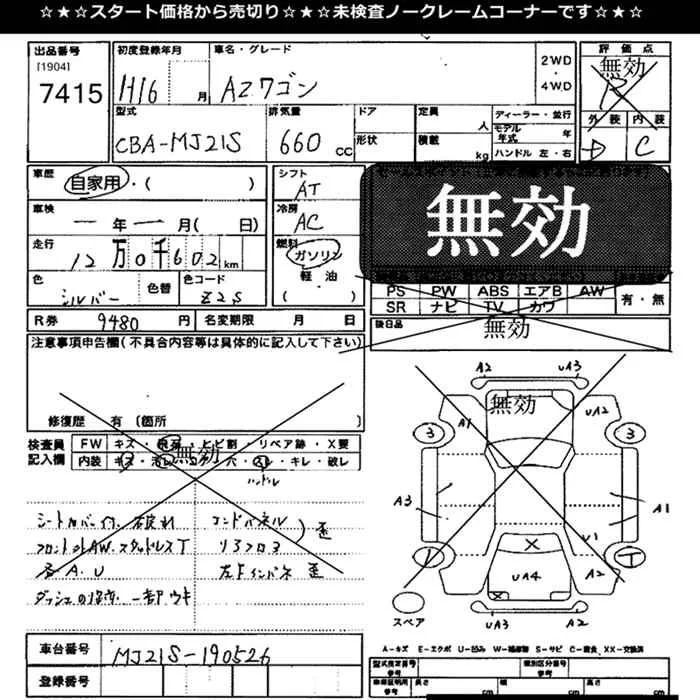 ☆★☆★スタート価格から売切り☆★☆★未検査ノークレームコーナーです☆★☆
出品番号 初度登録年月 車名・グレード 2WD・4WD 評価点
[1904]
7415 H16 月 AZワゴン 無効 R
型式 排気量 ドア 定員 人 ディーラー・並行 外装 内装
CBA-MJ21S 660 CC 形状 積載 kg モデル年式 年 ハンドル 左・右 D C
車歴 自家用・( ) シフト AT
車検 一年一月( 日) 冷房 AC 無効
走行 12万0千602km 燃料 ガソリン
軽油
( )
色 シルバー 色替 色コード Z2S
PS PW ABS エアB AW 有・無
SR ナビ TV カワ
R券 9480円 名変期限 月 日 後日品 無効
注意事項申告欄(不具合内容等は具体的に記入して下さい)
修復歴 有 (箇所
検査員記入欄 FW キズ・飛石・ヒビ割・リペア跡・X要
内装 キズ・汚レ・コゲ・穴・スレ・キレ・破レ
無効
ハンドル
シートカバー付 破れ コンドパネル
フロントのAW.スタッドレスT リアフロア 歪
各A.U 左Fインパネ 歪
ダッシュの 一部ウキ
車台番号 MJ21S-190526
登録番号
無効
A2 UA3
A1 UA2
3 3
A3 A1
U1
UA4 A2
T
スペア UA3 A2
A-キズ E-エクボ U-凹み W-補修跡 S-サビ C-腐食 XX-交換済
型式指定番号 参考 類別区分番号 参考
車庫証明用 参考 長さ cm 幅 cm 高さ cm